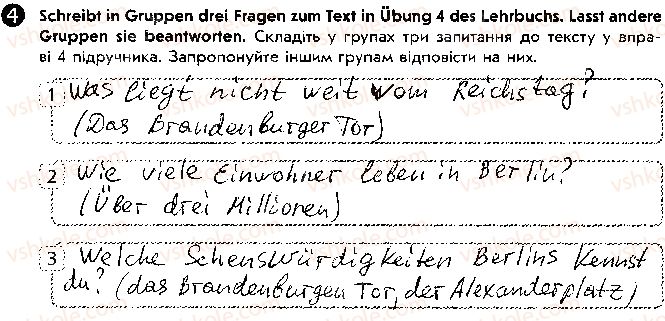 4 Schreibt in Gruppen drei Fragen zum Text in Übung 4 des Lehrbuchs. Lasst andere
Gruppen sie beantworten. Складіть у групах три запитання до тексту у впра-
ві 4 підручника. Запропонуйте іншим групам відповісти на них.
1 Was liegt nicht weit vom Reichstag?
(Das Brandenburger Tor)
2 Wie viele Einwohner leben in Berlin?
(Über drei Millionen)
3 Welche Sehenswürdigkeiten Berlins kennst
du? (das Brandenburgen Tor, der Alexanderplatz)